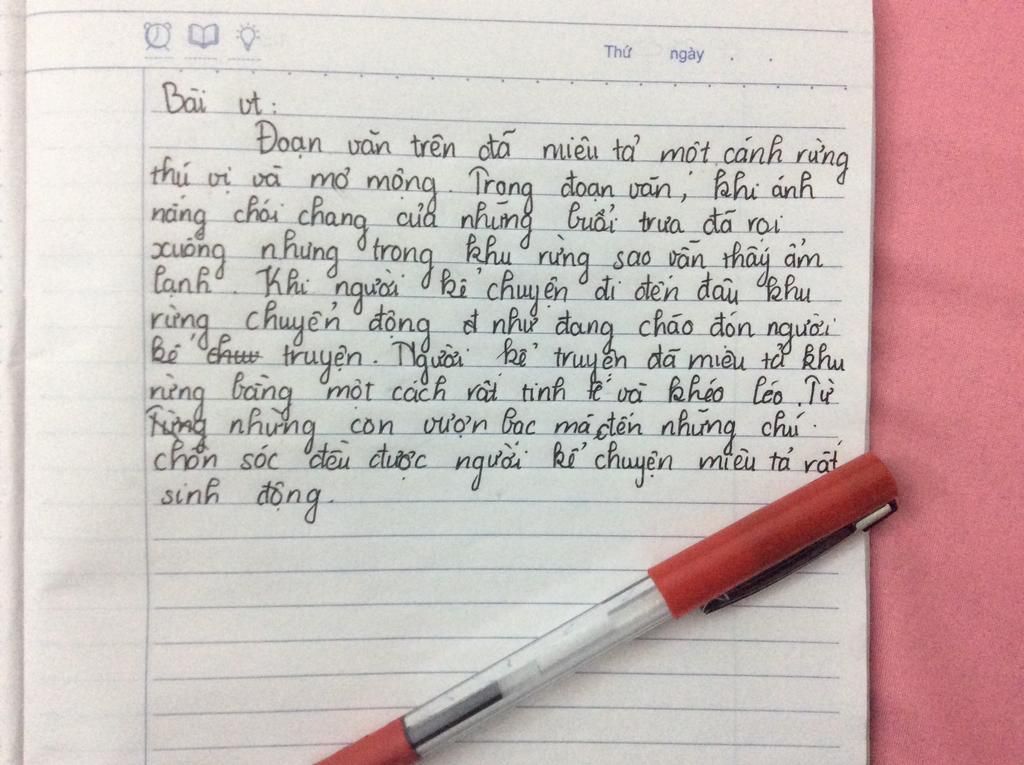 Thứ ngày . .
Bài vt :
Đoạn văn trên đã miêu tả một cánh rừng
thú vị và mơ mộng. Trong đoạn văn, khi ánh
nắng chói chang của những buổi trưa đã rọi
xuống nhưng trong khu rừng sao vẫn thấy ẩm
lạnh. Khi người kể chuyện đi đến đâu khu
rừng chuyển động như đang chào đón người
kể truyện. Người kể truyện đã miêu tả khu
rừng bằng một cách rất tinh tế và khéo léo. Từ
những con vượn bạc má đến những chú
chồn sóc đều được người kể chuyện miêu tả rất
sinh động.